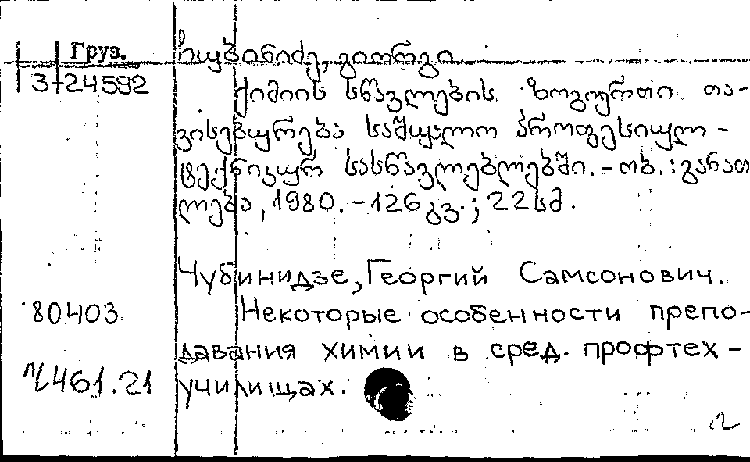 Груз.
ჩუბინიძე, გიორგი
3-24592
ქიმიის სწავლების ზოგიერთი თა-
ვისებურება საშუალო პროფესიულ-
ტექნიკურ სასწავლებლებში. - თბ. : განათ
ლება, 1980. - 126 გვ. ; 22 სმ.
Чубинидзе, Георгий Самсонович.
80403 Некоторые особенности препо-
давания химии в сред. профтех-
461.21 училищах.